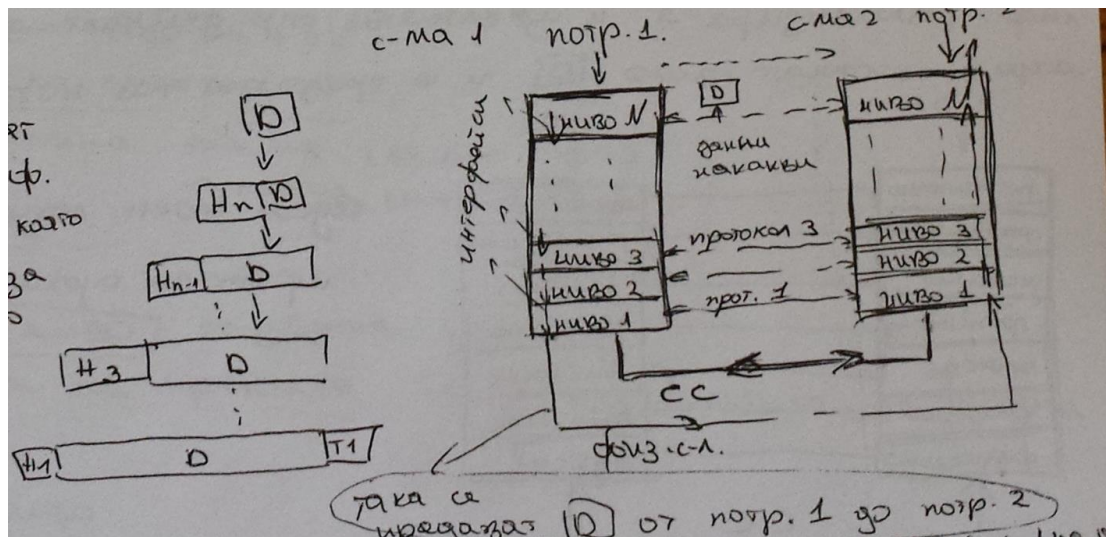 с-ма 1 потр. 1. с-ма 2 потр. 2
D
Hn D
Hn-1 D
H3 D
H1 D T1
която
за
интерфейси
ниво N
ниво 3
ниво 2
ниво 1
D
данни
протокол 3
прот. 1
ниво N
ниво 3
ниво 2
ниво 1
СС
физ. с-л.
така се
предават D от потр. 1 до потр. 2